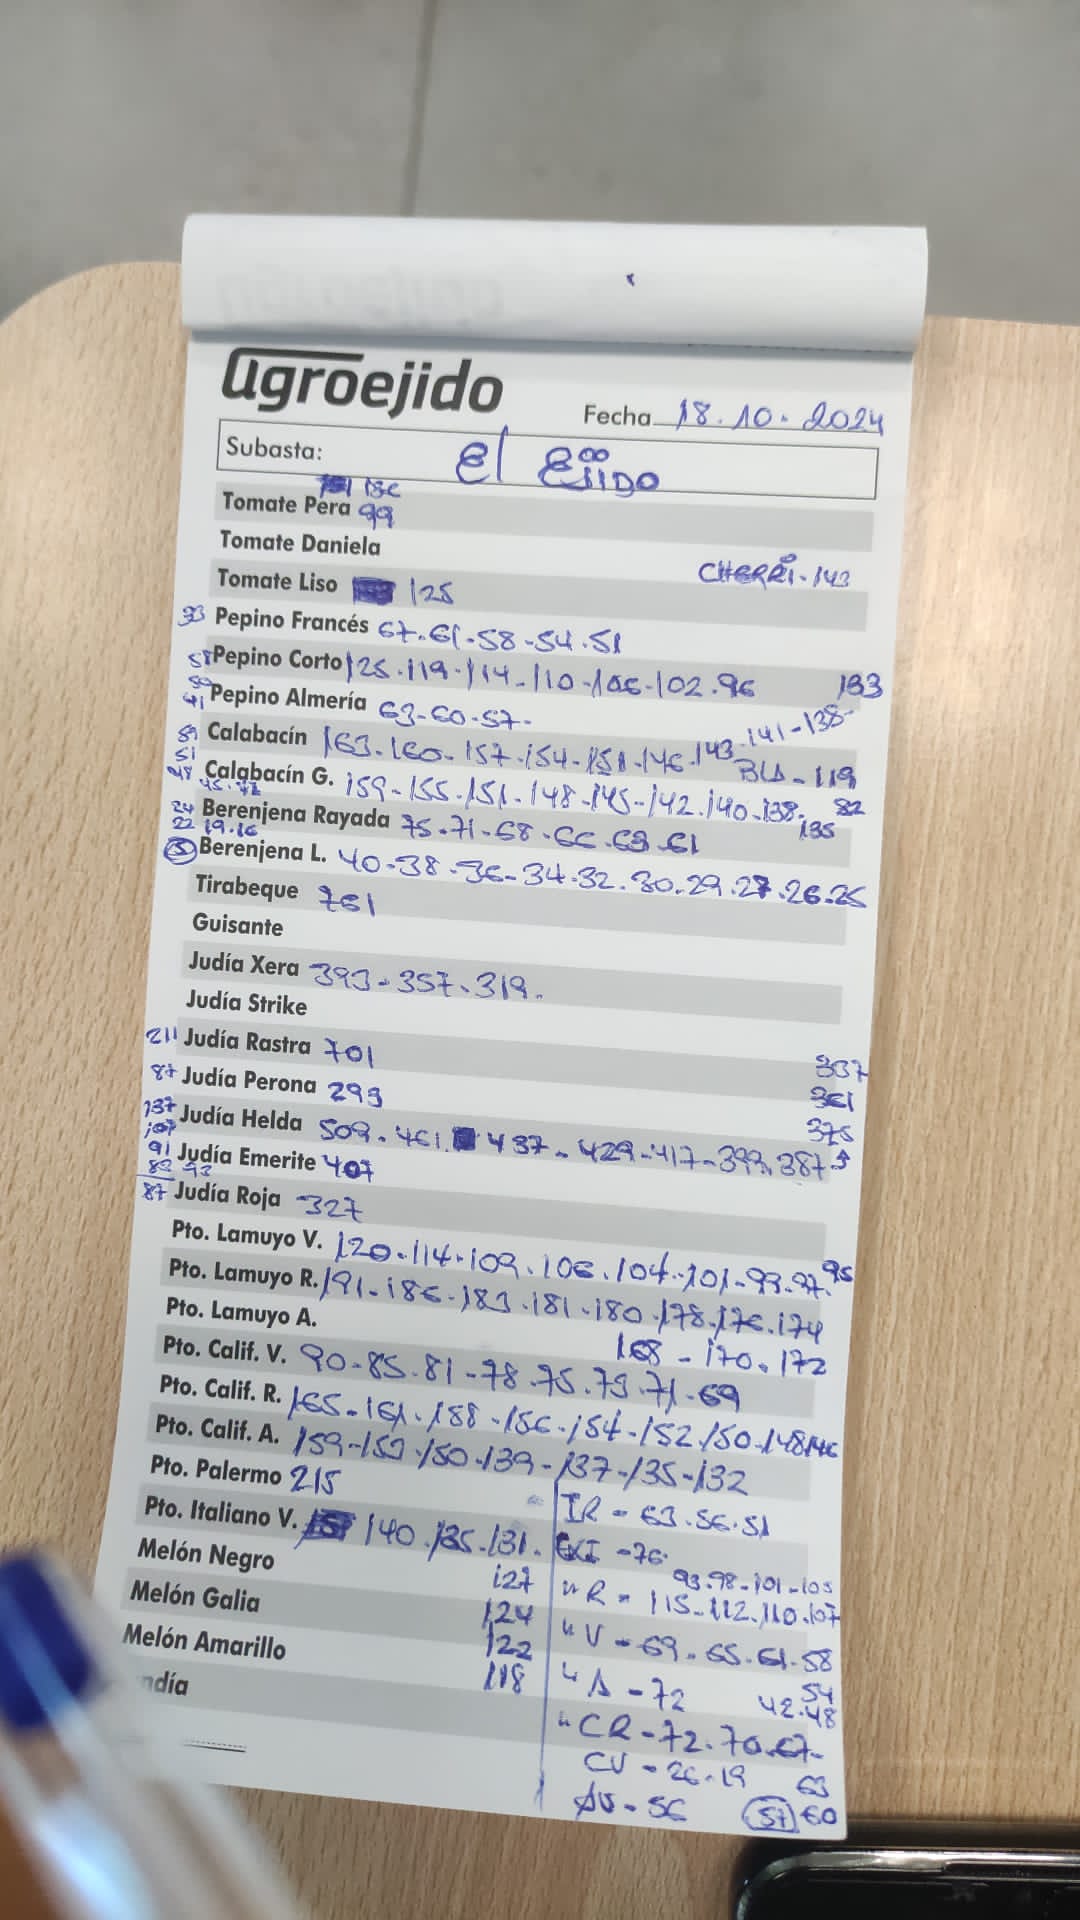 agroejido
Fecha 18.10.2024
Subasta: El Ejido
136
Tomate Pera 99
Tomate Daniela
CHERRI-143
Tomate Liso 125
33 Pepino Francés 67.61-58-54.51
Pepino Corto 125.119-114-110-106-102.96 133
41 Pepino Almería 63-60-57-
141-138-
89 Calabacín 163.160-157-154-151-146-143
51 BLA-119
48 Calabacín G. 159-155-151-148-145-142.140-138- 82
45.72 135
24 Berenjena Rayada 75-71-68-66.63-61
22 19.16
Berenjena L. 40-38-36-34-32.30.29.27.26.25
Tirabeque 761
Guisante
Judía Xera 393-357-319.
Judía Strike
211 Judía Rastra 701
337
87 Judía Perona 293
361
137 Judía Helda 509.461 437-429-417-399.387
107 375
91 Judía Emerite 407
87 Judía Roja 327
Pto. Lamuyo V. 120-114-109.106.104-101-99.97.95
Pto. Lamuyo R. 191-186-183.181-180-178-176.174
Pto. Lamuyo A.
168-170.172
Pto. Calif. V. 90-85.81-78.75.73.71-69
Pto. Calif. R. 165-161.158-156-154-152.150-148.146
Pto. Calif. A. 159-153-150-139-137-135-132
Pto. Palermo 215
IR-63.56.51
Pto. Italiano V. 140.135.131.
-76
127
Melón Negro
93.98-101-105
" R-115-112.110.107
124
Melón Galia
" V-69.65.61.58
122
Melón Amarillo
54
" A-72 42.48
118
ndía
" CR-72.70.67-
CV-26-19 63
-56 57 60